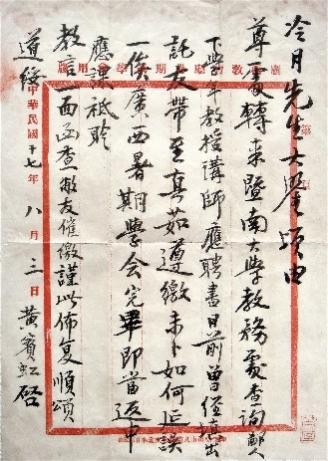 冷月先生大鉴頃由
尊處轉来暨南大學教務處查詢鄙人
下學年教授講師應聘書日前曾經填出
託友帶至真茹遵繳未卜如何延誤
一俟廣西暑期學会完畢即當返申
應課祗聆
教言一面函查敝友催繳謹此佈复順頌
道綏
中華民國十七年八月三日黄賓虹啓